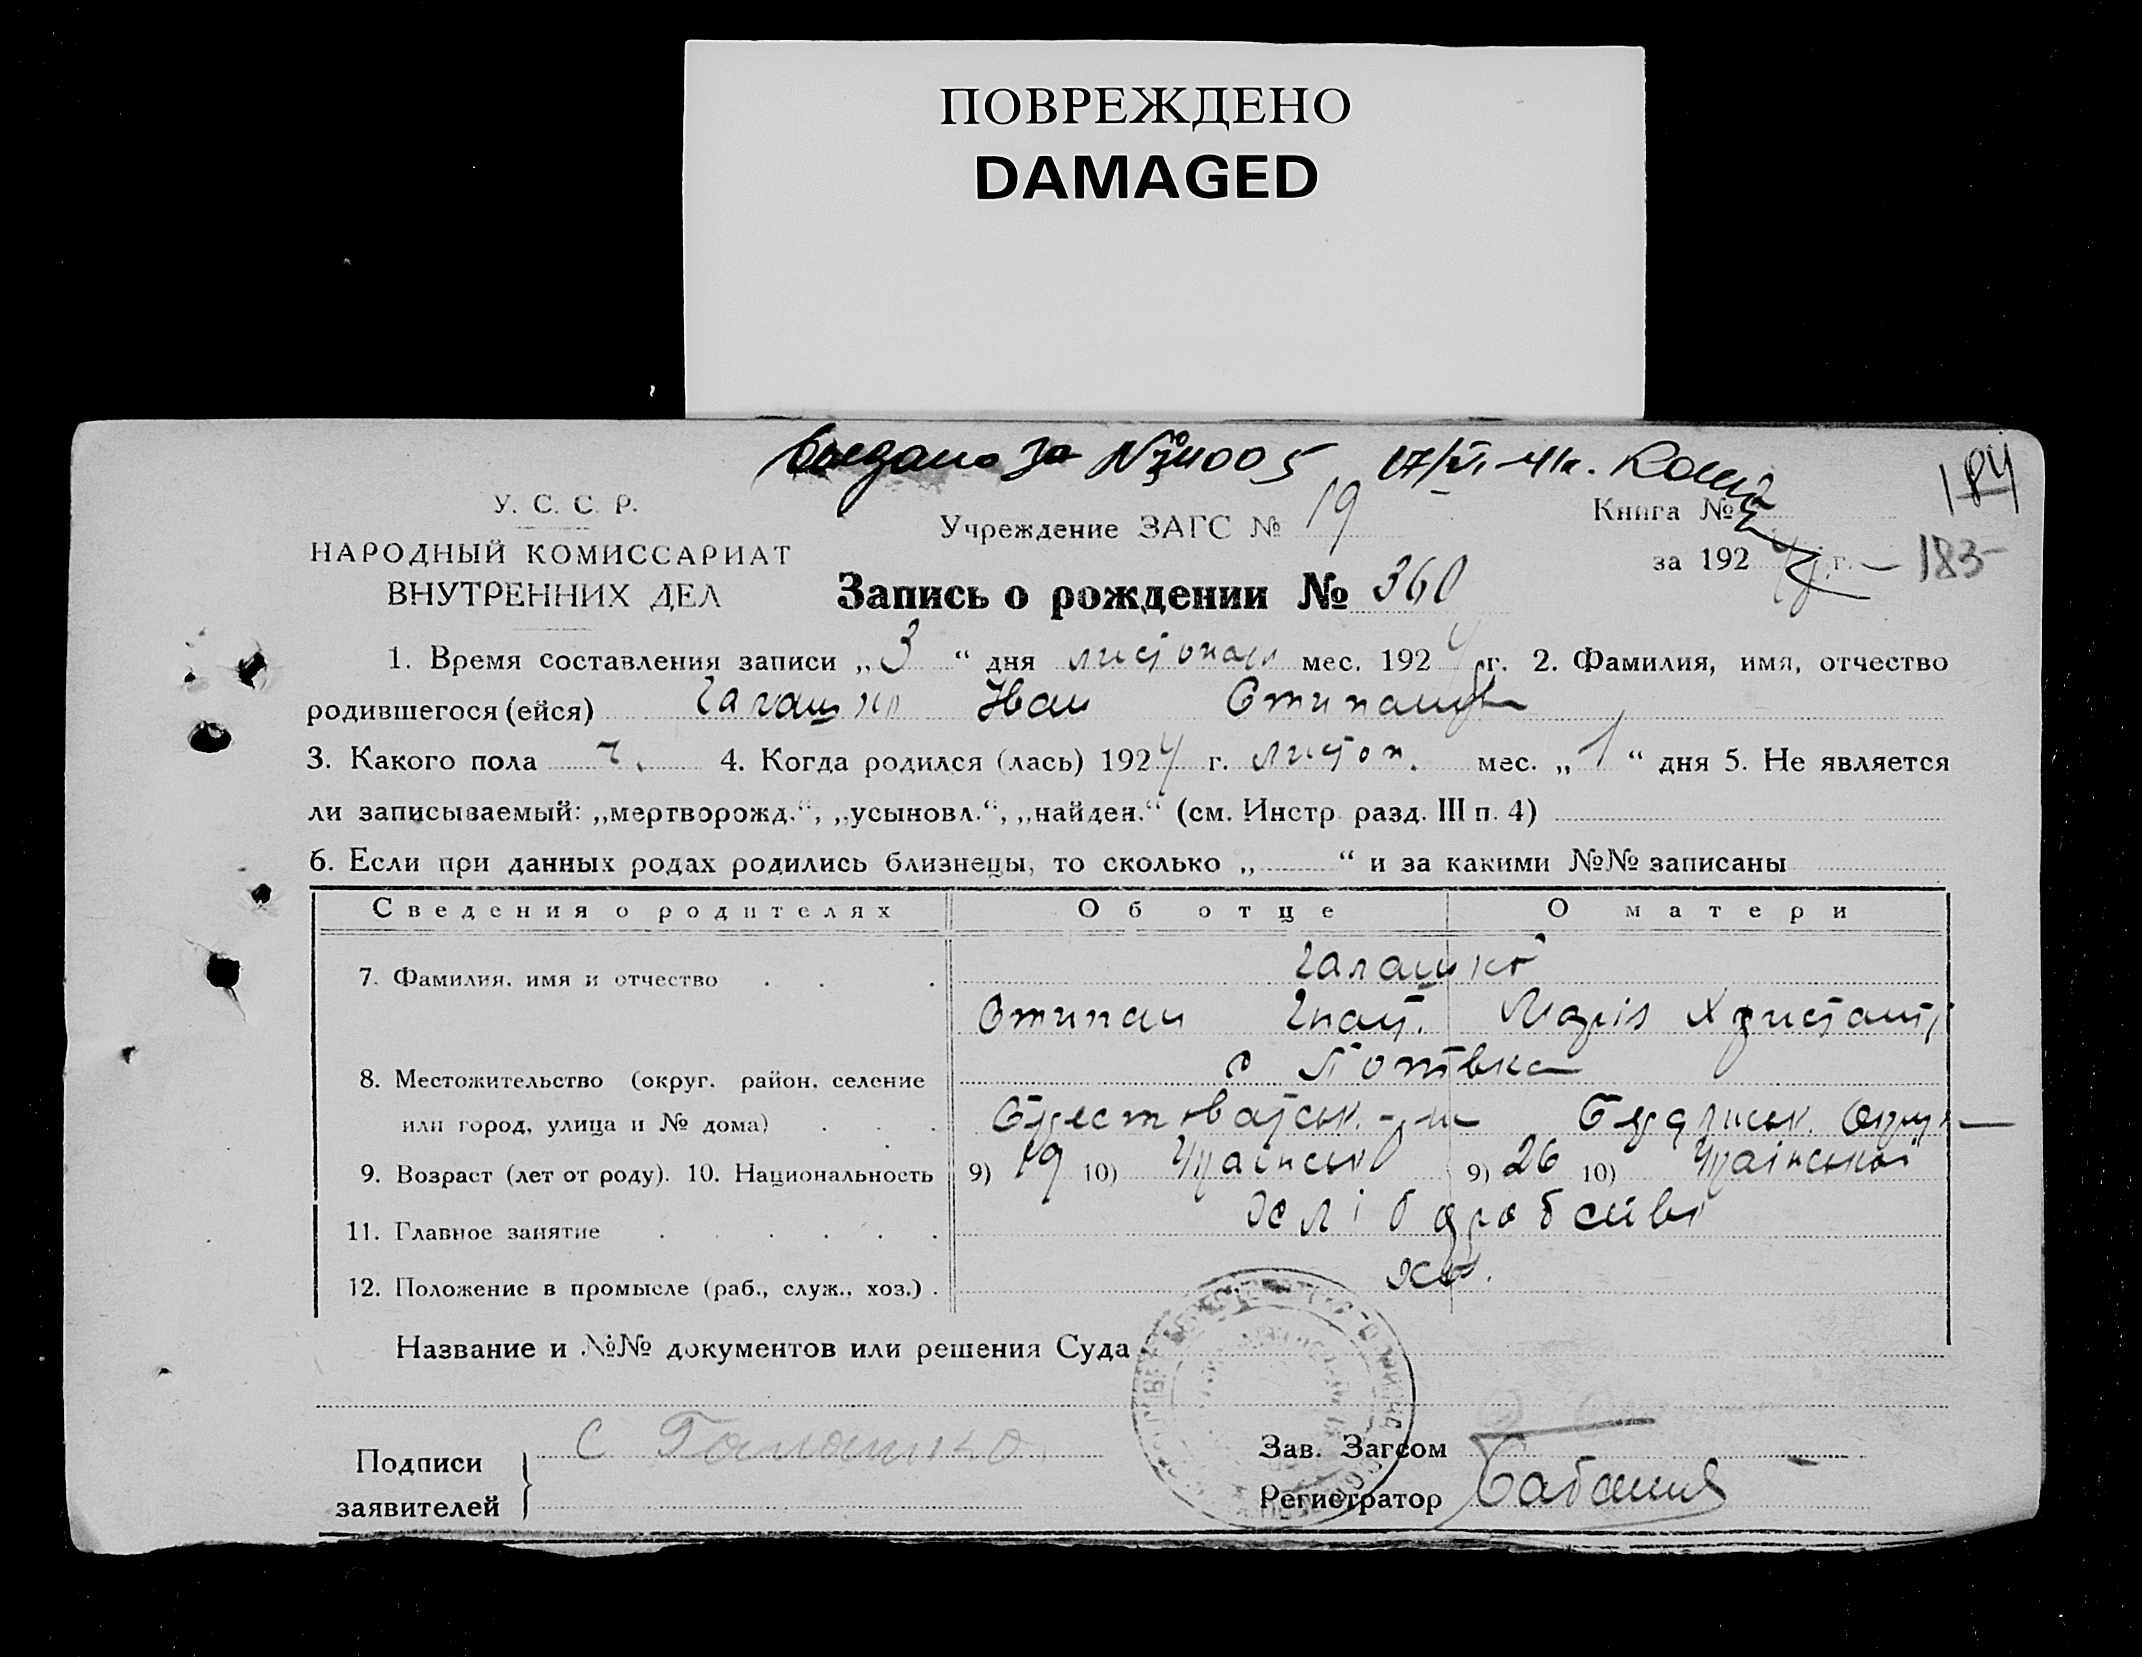 ПОВРЕЖДЕНО
DAMAGED
за № 17/VI-41г.
184
У. С. С. Р.
Учреждение ЗАГС № 19
Книга №
НАРОДНЫЙ КОМИССАРИАТ
за 1924 г. 183
ВНУТРЕННИХ ДЕЛ
Запись о рождении № 360
1. Время составления записи „3“ дня листопад мес. 1924 г. 2. Фамилия, имя, отчество
родившегося (ейся) Галашко Иван
3. Какого пола ч. 4. Когда родился (лась) 1924 г. листоп. мес. „1“ дня 5. Не является
ли записываемый: „мертворожд.“, „усыновл.“, „найден.“ (см. Инстр. разд. III п. 4)
6. Если при данных родах родились близнецы, то сколько „ “ и за какими №№ записаны
Сведения о родителях Об отце О матери
7. Фамилия, имя и отчество Галашко
Стипан Гнат. Марія
8. Местожительство (округ. район. селение с
или город, улица и № дома)
9. Возраст (лет от роду). 10. Национальность 9) 19 10) 9) 26 10)
11. Главное занятие хліборобство
12. Положение в промысле (раб., служ., хоз.)
Название и №№ документов или решения Суда
Подписи
заявителей
С Галашко
Зав. Загсом
Регистратор